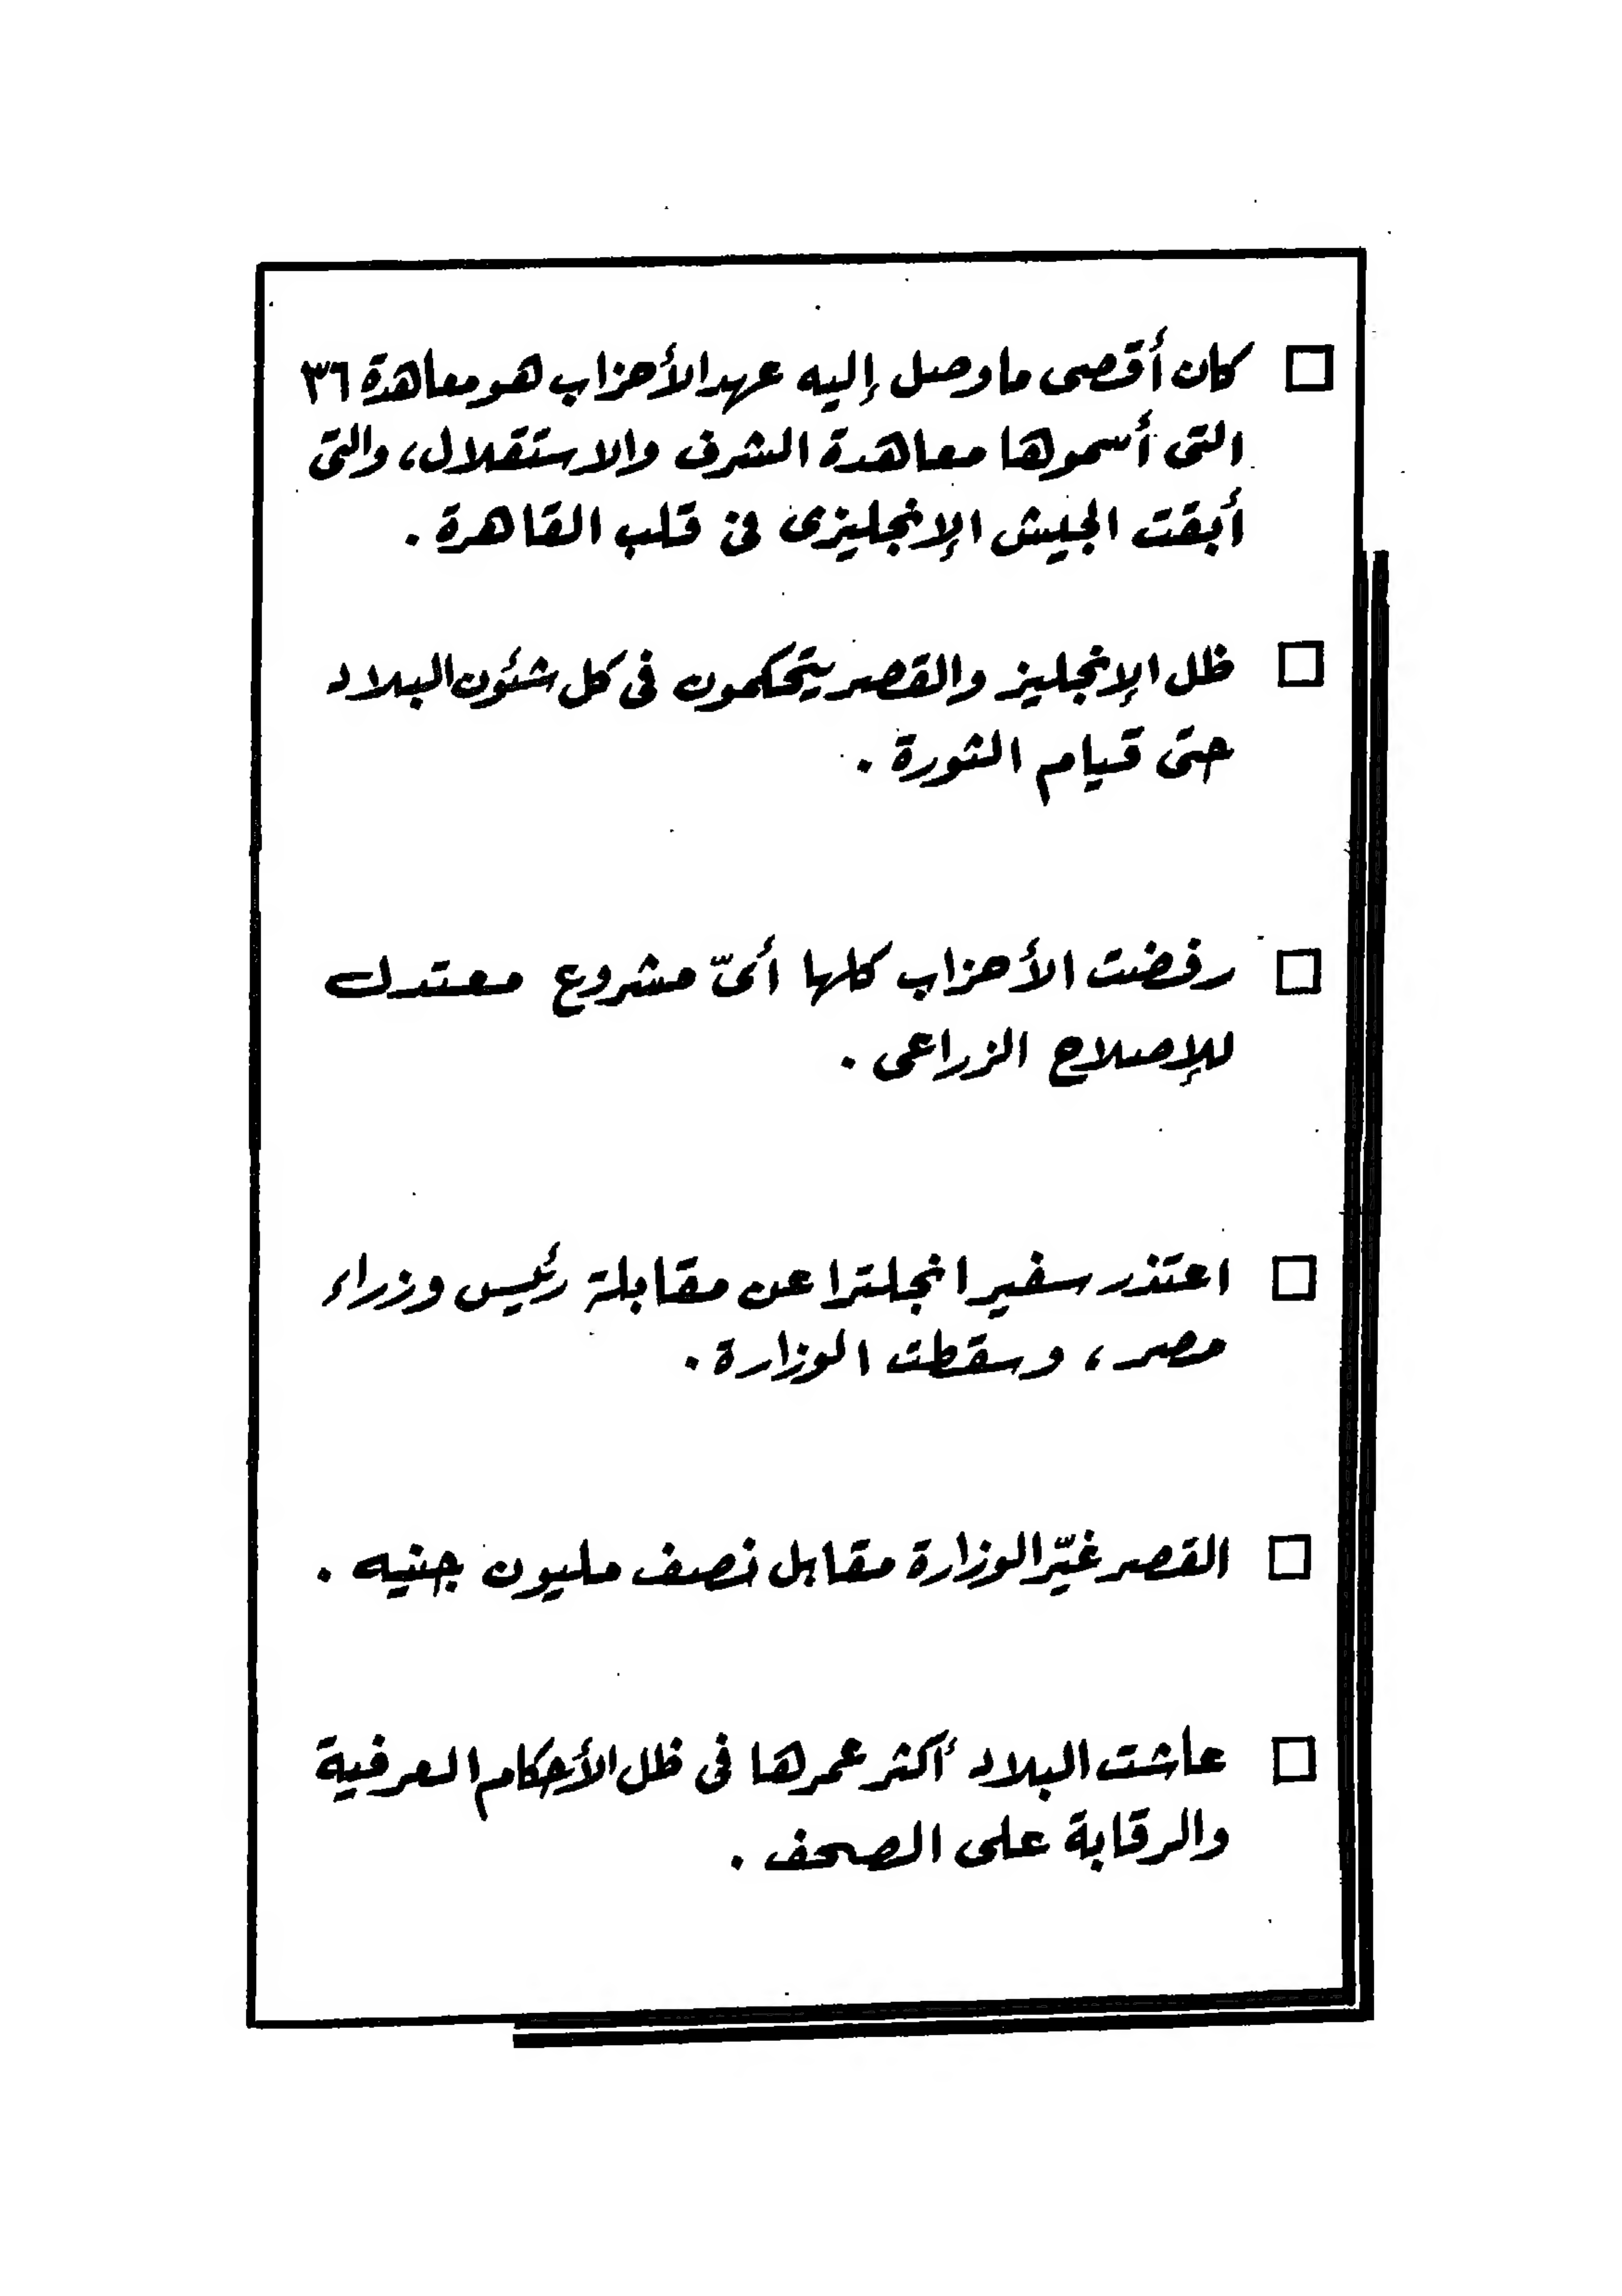 □ كان أقصى ما وصل إليه عهد الأحزاب هو معاهدة ٣٦
التى أسموها معاهدة الشرف والاستقلال، والتى
أبقت الجيش الإنجليزى فى قلب القاهرة .
□ ظل الإنجليز والقصر يتحكمون فى كل شئون البلاد
حتى قيام الثورة .
□ رفضت الأحزاب كلها أىّ مشروع معتدل
للإصلاح الزراعى .
□ اعتذر سفير انجلترا عن مقابلة رئيس وزراء
مصر ، وسقطت الوزارة .
□ القصر غيّر الوزارة مقابل نصف مليون جنيه .
□ عاشت البلاد أكثر عمرها فى ظل الأحكام العرفية
والرقابة على الصحف .